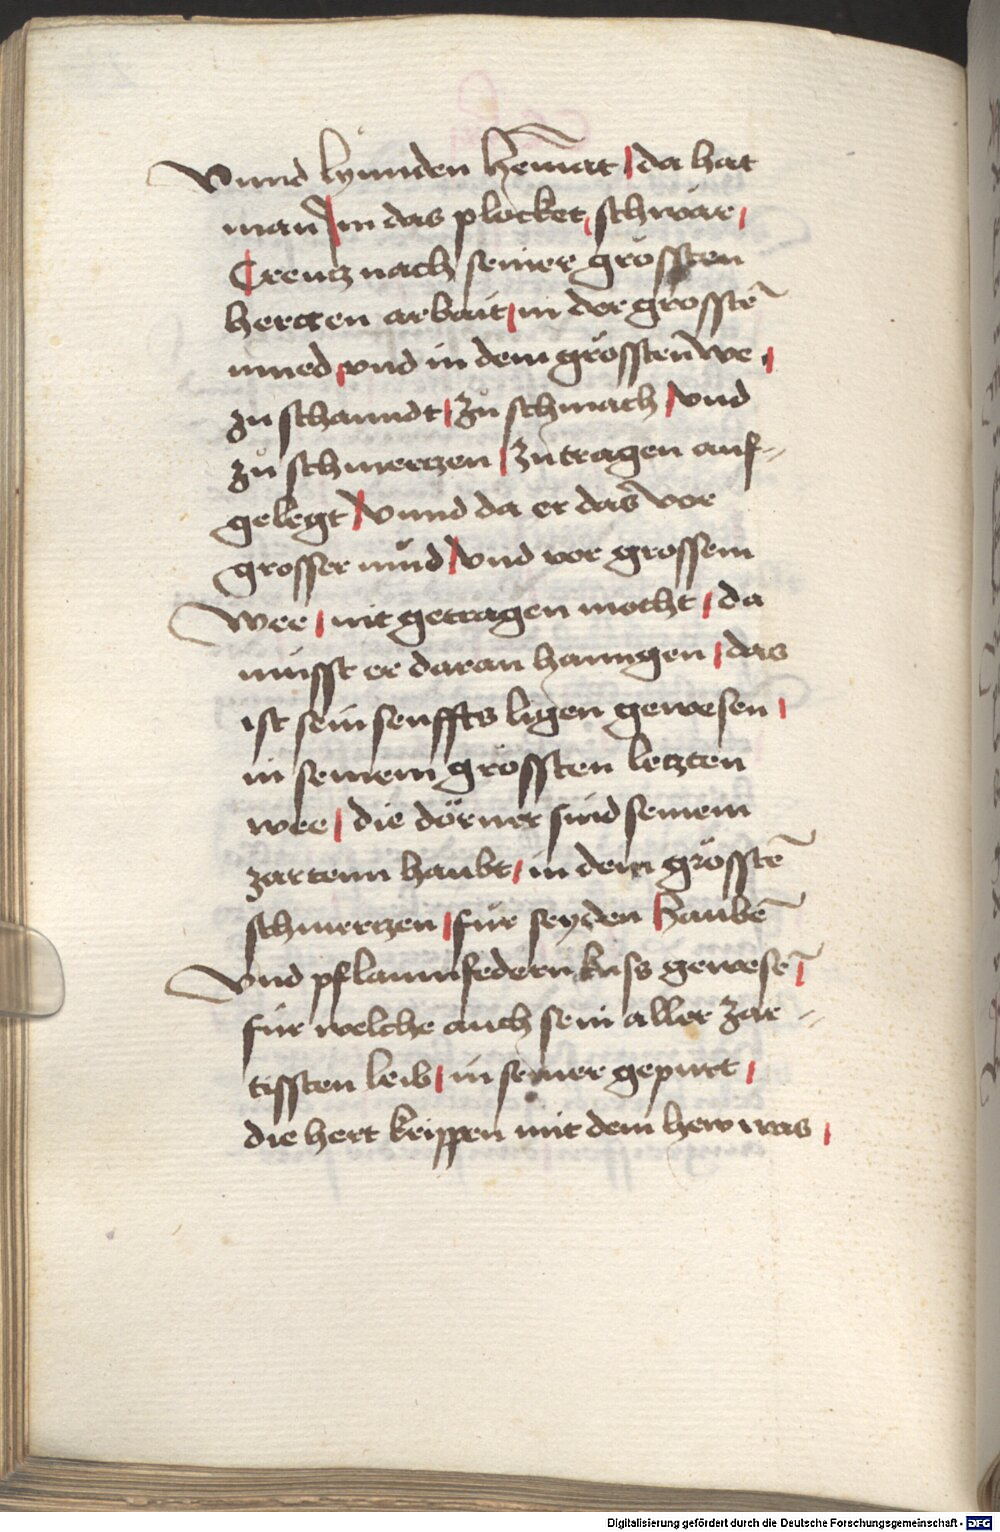 vnnd lynnden hem̄at / da hat
man / in das plocket / schwär /
Creutz nach seiner grössten
hertten arbait / in der grösstē
mued / vnd in dem grössten we /
zu schanndt / zů schmach / vnd
zů schmertzen / zů tragen auf=
gelegt / vnnd da er das vor
grosser müd / vnd vor grossem
wee / nit getragen mocht / da
musst er daran hanngen / das
ist sein senffts ligen gewesen /
in seinem grössten letzten
wee / die dörner sind seinem
zartenn haubt / in dem grösstē
schmertzen / für seyden haubē
vnd pflaumfedern kuss gewesē /
für welche auch sein aller zar=
tissten leib / in seiner gepurt /
die hert krippen mit dem hew was /
Digitalisierung gefördert durch die Deutsche Forschungsgemeinschaft - DFG